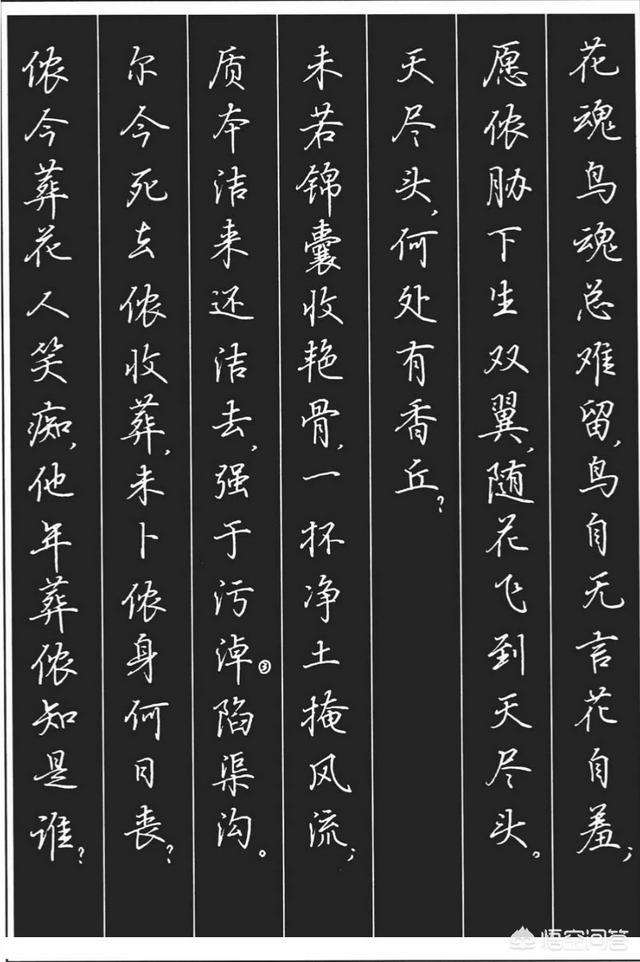 花魂鸟魂总难留，鸟自无言花自羞；
愿侬胁下生双翼，随花飞到天尽头。
天尽头，何处有香丘？
未若锦囊收艳骨，一抔净土掩风流；
质本洁来还洁去，强于污淖③陷渠沟。
尔今死去侬收葬，未卜侬身何日丧？
侬今葬花人笑痴，他年葬侬知是谁？
悟空问答